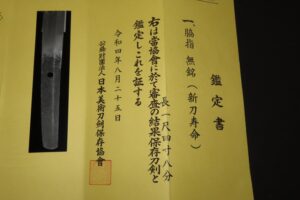 鑑定書
一、脇指 無銘(新刀寿命)
長一尺四寸八分
右は當協會に於て審査の結果保存刀剣と
鑑定しこれを証する
令和四年八月二十五日
公益財団法人日本美術刀剣保存協會